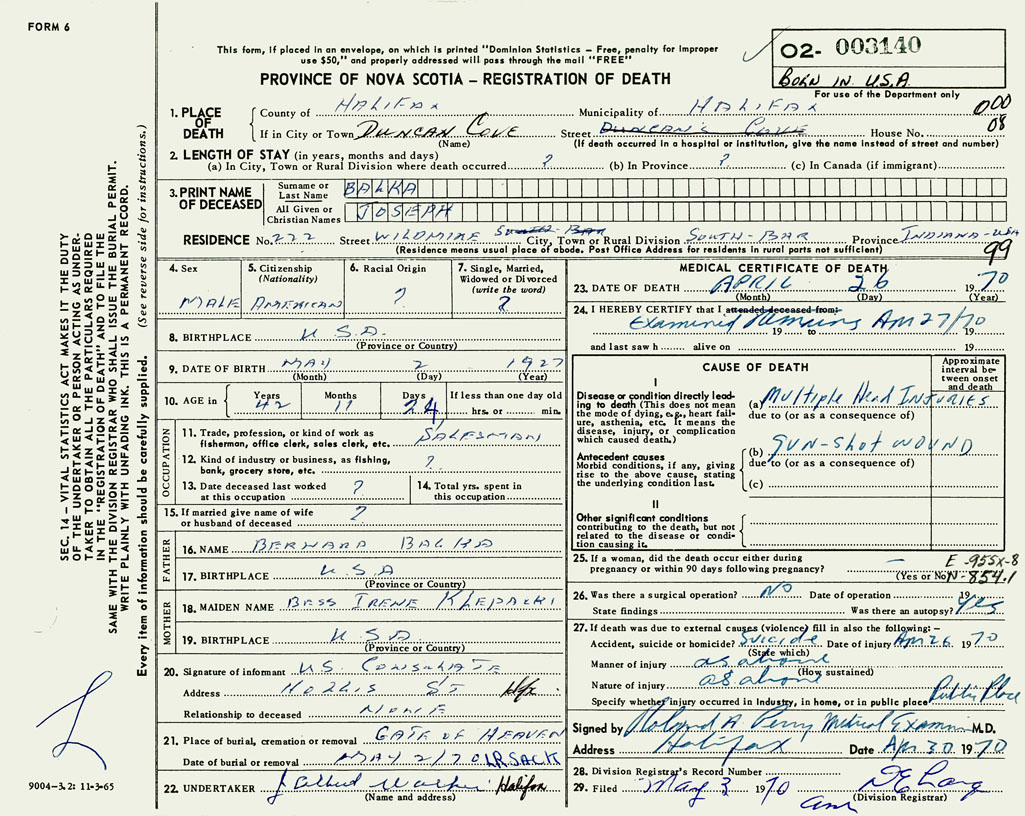 FORM 6
This form, if placed in an envelope, on which is printed "Dominion Statistics – Free, penalty for improper
use $50," and properly addressed will pass through the mail "FREE"
PROVINCE OF NOVA SCOTIA – REGISTRATION OF DEATH
02- 003140
BORN IN U.S.A
For use of the Department only
000
08
1. PLACE OF DEATH
County of HALIFAX Municipality of HALIFAX
If in City or Town DUNCAN COVE Street DUNCAN'S COVE House No.
(Name) (If death occurred in a hospital or institution, give the name instead of street and number)
2. LENGTH OF STAY (in years, months and days)
(a) In City, Town or Rural Division where death occurred ? (b) In Province ? (c) In Canada (if immigrant)
3. PRINT NAME OF DECEASED
Surname or Last Name BALKA
All Given or Christian Names JOSEPH
RESIDENCE No. 222 Street WILDMIRE SOUTH-BAR City, Town or Rural Division SOUTH-BAR Province INDIANA-USA
(Residence means usual place of abode. Post Office Address for residents in rural parts not sufficient)
99
4. Sex
MALE
5. Citizenship (Nationality)
AMERICAN
6. Racial Origin
?
7. Single, Married, Widowed or Divorced (write the word)
?
8. BIRTHPLACE U.S.A.
(Province or Country)
9. DATE OF BIRTH MAY 2 1927
(Month) (Day) (Year)
10. AGE in
Years 42 Months 11 Days 24
If less than one day old
hrs. or min.
OCCUPATION
11. Trade, profession, or kind of work as
fishermen, office clerk, sales clerk, etc. SALESMAN
12. Kind of industry or business, as fishing,
bank, grocery store, etc. ?
13. Date deceased last worked
at this occupation ?
14. Total yrs. spent in
this occupation
15. If married give name of wife
or husband of deceased ?
FATHER
16. NAME BERNARD BALKA
17. BIRTHPLACE U.S.A
(Province or Country)
MOTHER
18. MAIDEN NAME BESS IRENE KLEPACKI
19. BIRTHPLACE U.S.A
(Province or Country)
20. Signature of informant U.S. CONSULATE
Address HOLLIS ST Hfx
Relationship to deceased NONE
21. Place of burial, cremation or removal GATE OF HEAVEN
Date of burial or removal MAY 2/70 LR. SACK
22. UNDERTAKER J Albert Walker Halifax
(Name and address)
MEDICAL CERTIFICATE OF DEATH
23. DATE OF DEATH APRIL 26 1970
(Month) (Day) (Year)
24. I HEREBY CERTIFY that I attended deceased from:
Examined Remains Apr 27/70
19 to 19
and last saw h alive on 19
CAUSE OF DEATH
Approximate interval between onset and death
I
Disease or condition directly leading to death (This does not mean
the mode of dying, e.g., heart failure, asthenia, etc. It means the
disease, injury, or complication
which caused death.)
(a) Multiple Head INJURIES
due to (or as a consequence of)
Antecedent causes
Morbid conditions, if any, giving
rise to the above cause, stating
the underlying condition last.
(b) GUN-SHOT WOUND
due to (or as a consequence of)
(c)
II
Other significant conditions
contributing to the death, but not
related to the disease or condition causing it.
25. If a woman, did the death occur either during
pregnancy or within 90 days following pregnancy? —
(Yes or No)
E-955X-8
N-854.1
26. Was there a surgical operation? NO Date of operation 19
State findings Was there an autopsy? Yes
27. If death was due to external causes (violence) fill in also the following:–
Accident, suicide or homicide? Suicide Date of injury Apr 26 1970
(State which)
Manner of injury as above
(How sustained)
Nature of injury as above
Specify whether injury occurred in industry, in home, or in public place Public Place
Signed by Roland A. Perry Medical Examiner M.D.
Address Halifax Date Apr 30 1970
28. Division Registrar's Record Number
29. Filed May 3 1970
(Division Registrar)
SEC. 14 – VITAL STATISTICS ACT MAKES IT THE DUTY
OF THE UNDERTAKER OR PERSON ACTING AS UNDER-
TAKER TO OBTAIN ALL THE PARTICULARS REQUIRED
IN THE "REGISTRATION OF DEATH" AND TO FILE THE
SAME WITH THE DIVISION REGISTRAR WHO SHALL ISSUE THE BURIAL PERMIT.
WRITE PLAINLY WITH UNFADING INK. THIS IS A PERMANENT RECORD.
Every item of information should be carefully supplied. (See reverse side for instructions.)
9004-3.2: 11-3-65